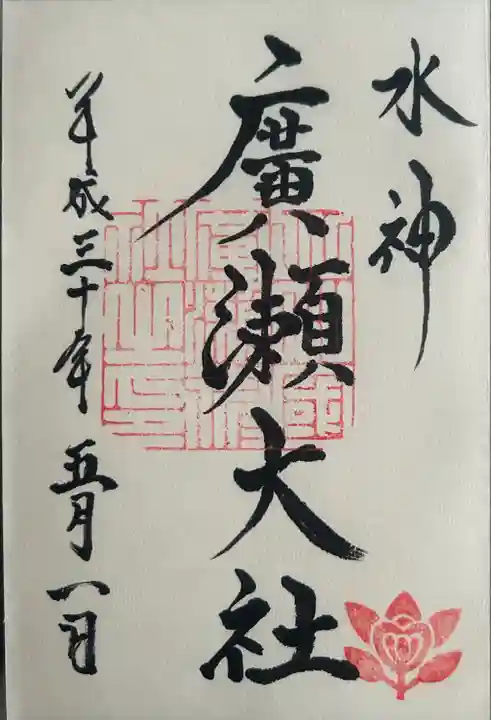 水神
廣瀬大社
平成三十年五月一日